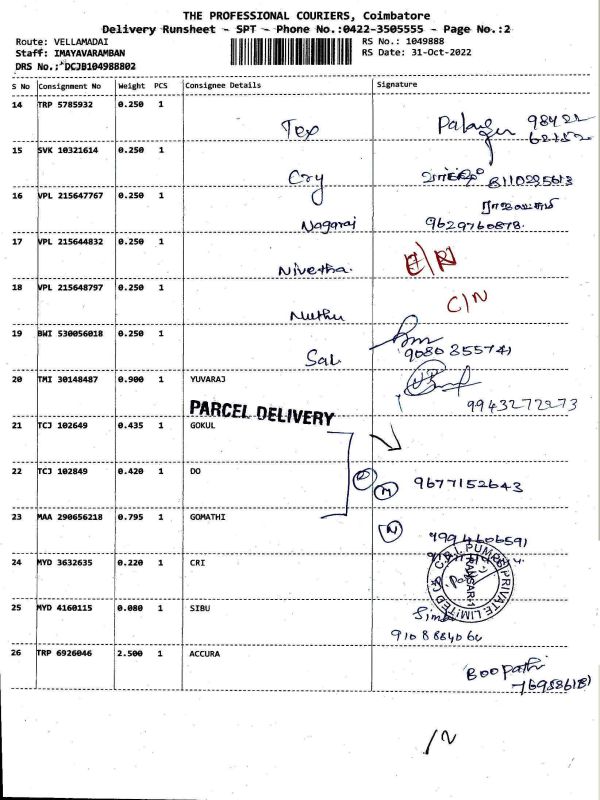 THE PROFESSIONAL COURIERS, Coimbatore
Delivery Runsheet - SPT - Phone No.:0422-3505555 - Page No.:2
Route: VELLAMADAI
RS No.: 1049888
Staff: IMAYAVARAMBAN
RS Date: 31-Oct-2022
DRS No.: DCJB104988802
S No Consignment No Weight PCS Consignee Details Signature
14 TRP 5785932 0.250 1
Tex
98422
62152
15 SVK 10321614 0.250 1
Cry
8110285613
16 VPL 215647767 0.250 1
Nagaraj
9629760878.
17 VPL 215644832 0.250 1
Nivetha.
18 VPL 215648797 0.250 1
Muthu
C/N
19 BWI 530056018 0.250 1
Sal
9080355741
20 TMI 30148487 0.900 1 YUVARAJ
9943272273
PARCEL DELIVERY
21 TCJ 102649 0.435 1 GOKUL
22 TCJ 102849 0.420 1 DO
N 9677152643
23 MAA 290656218 0.795 1 GOMATHI
N
24 MYD 3632635 0.220 1 CRI
C.R.I. PUMPS PRIVATE LIMITED
25 MYD 4160115 0.080 1 SIBU
26 TRP 6926046 2.500 1 ACCURA
Boopathi